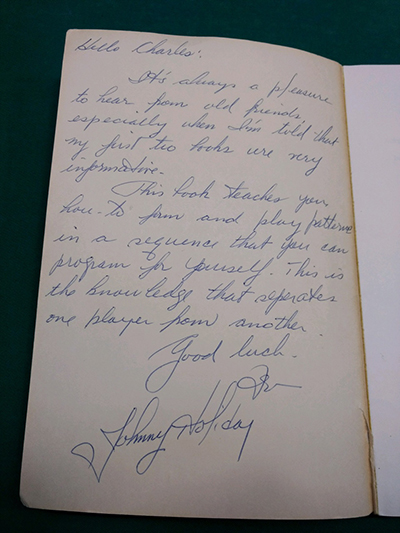 Hello Charles:
It's always a pleasure
to hear from old friends,
especially when I'm told that
my first two books were very
informative.
This book teaches you
how to form and play patterns
in a sequence that you can
program for yourself. This is
the knowledge that seperates
one player from another.
Good luck.
Johnny Holiday